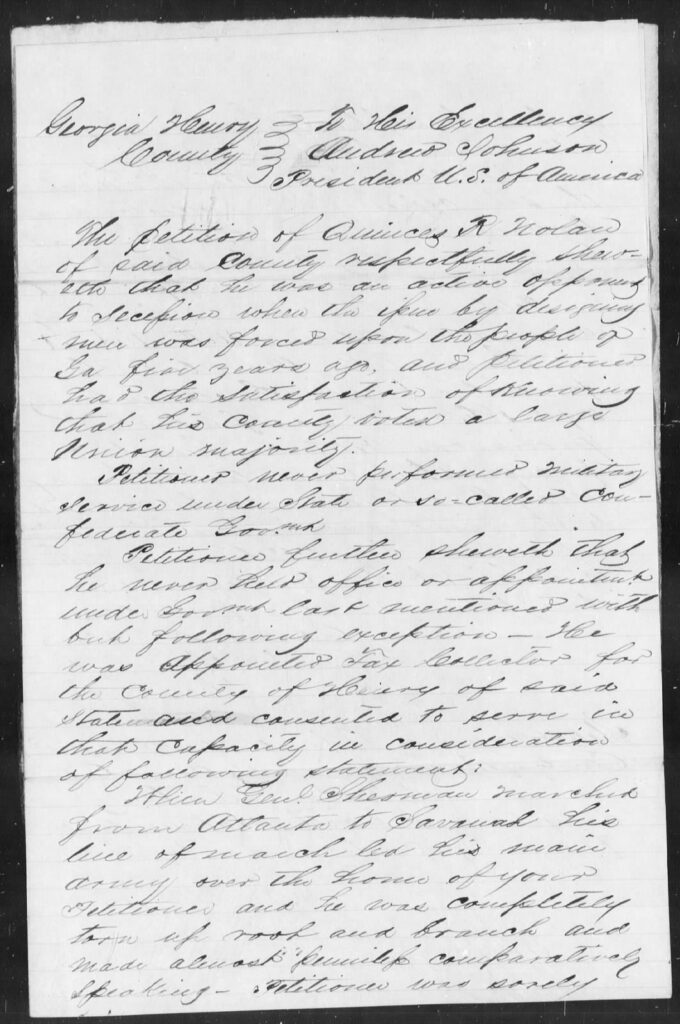 Georgia Henry } To His Excellency
County } Andrew Johnson
President U.S. of America
The petition of Quinces R Nolan
of said County respectfully shew-
eth that he was an active opponent
to secession when the issue by designing
men was forced upon the people of
Ga five years ago, and petitioner
had the satisfaction of knowing
that his county voted a large
Union majority.
Petitioner never performed military
service under State or so-called Con-
federate Govmt
Petitioner further sheweth that
he never held office or appointment
under Govmt last mentioned with
but following exception - He
was appointed Tax Collector for
the County of Henry of said
State and consented to serve in
that capacity in consideration
of following statement:
When Genl. Sherman marched
from Atlanta to Savanah his
line of march led his main
army over the home of your
Petitioner and he was completely
torn up root and branch and
made almost penniless comparatively
speaking - Petitioner was sorely